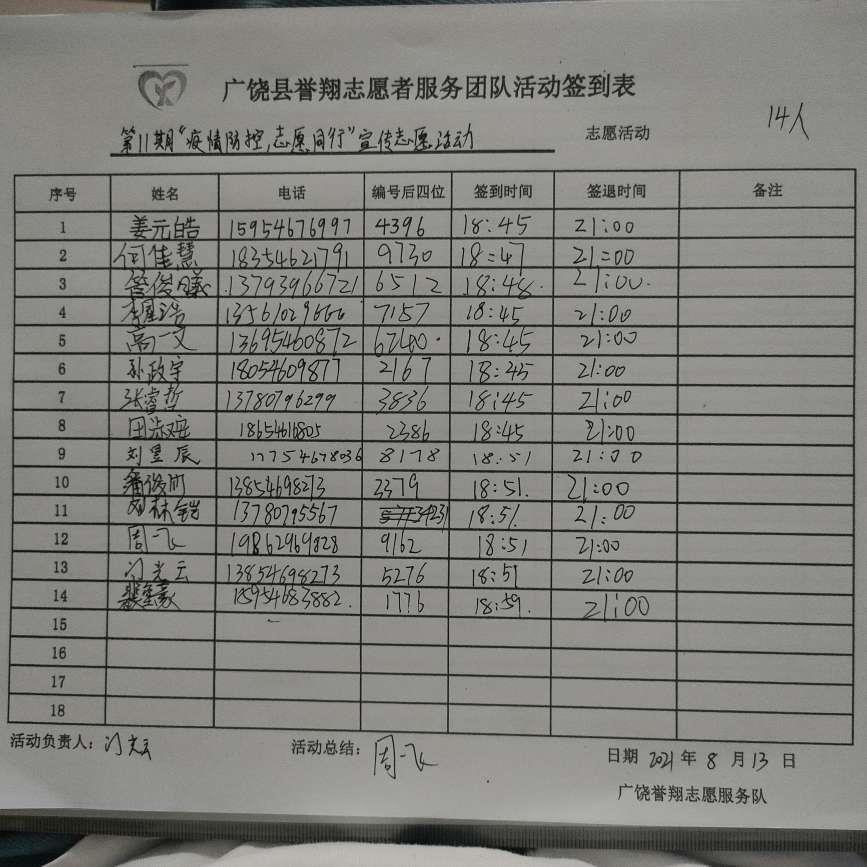 广饶县誉翔志愿者服务团队活动签到表
14人
第11期"疫情防控,志愿同行"宣传志愿活动 志愿活动
序号 姓名 电话 编号后四位 签到时间 签退时间 备注
1 姜元皓 15954676997 4396 18:45 21:00
2 何佳慧 18354621791 9730 18:47 21:00
3 管俊曦 13793966721 6512 18:48. 21:00.
4 浩 7157 18:45 21:00
5 高一文 13695460872 18:45 21:00
6 孙政宇 18054609877 2167 18:45 21:00
7 张睿哲 13780796299 3836 18:45 21:00
8 18654616805 2386 18:45 21:00
9 刘昱辰 17754678036 8178 18:51 21:00
10 13854698273 3379 18:51. 21:00
11 刘林铠 13780795567 18:51 21:00
12 周一飞 19862969828 9162 18:51 21:00
13 门光云 13854698273 5276 18:51 21:00
14 15954683882. 1776 18:59. 21:00
15
16
17
18
活动负责人: 门光云 活动总结: 周一飞 日期 2021 年 8 月 13 日
广饶誉翔志愿服务队